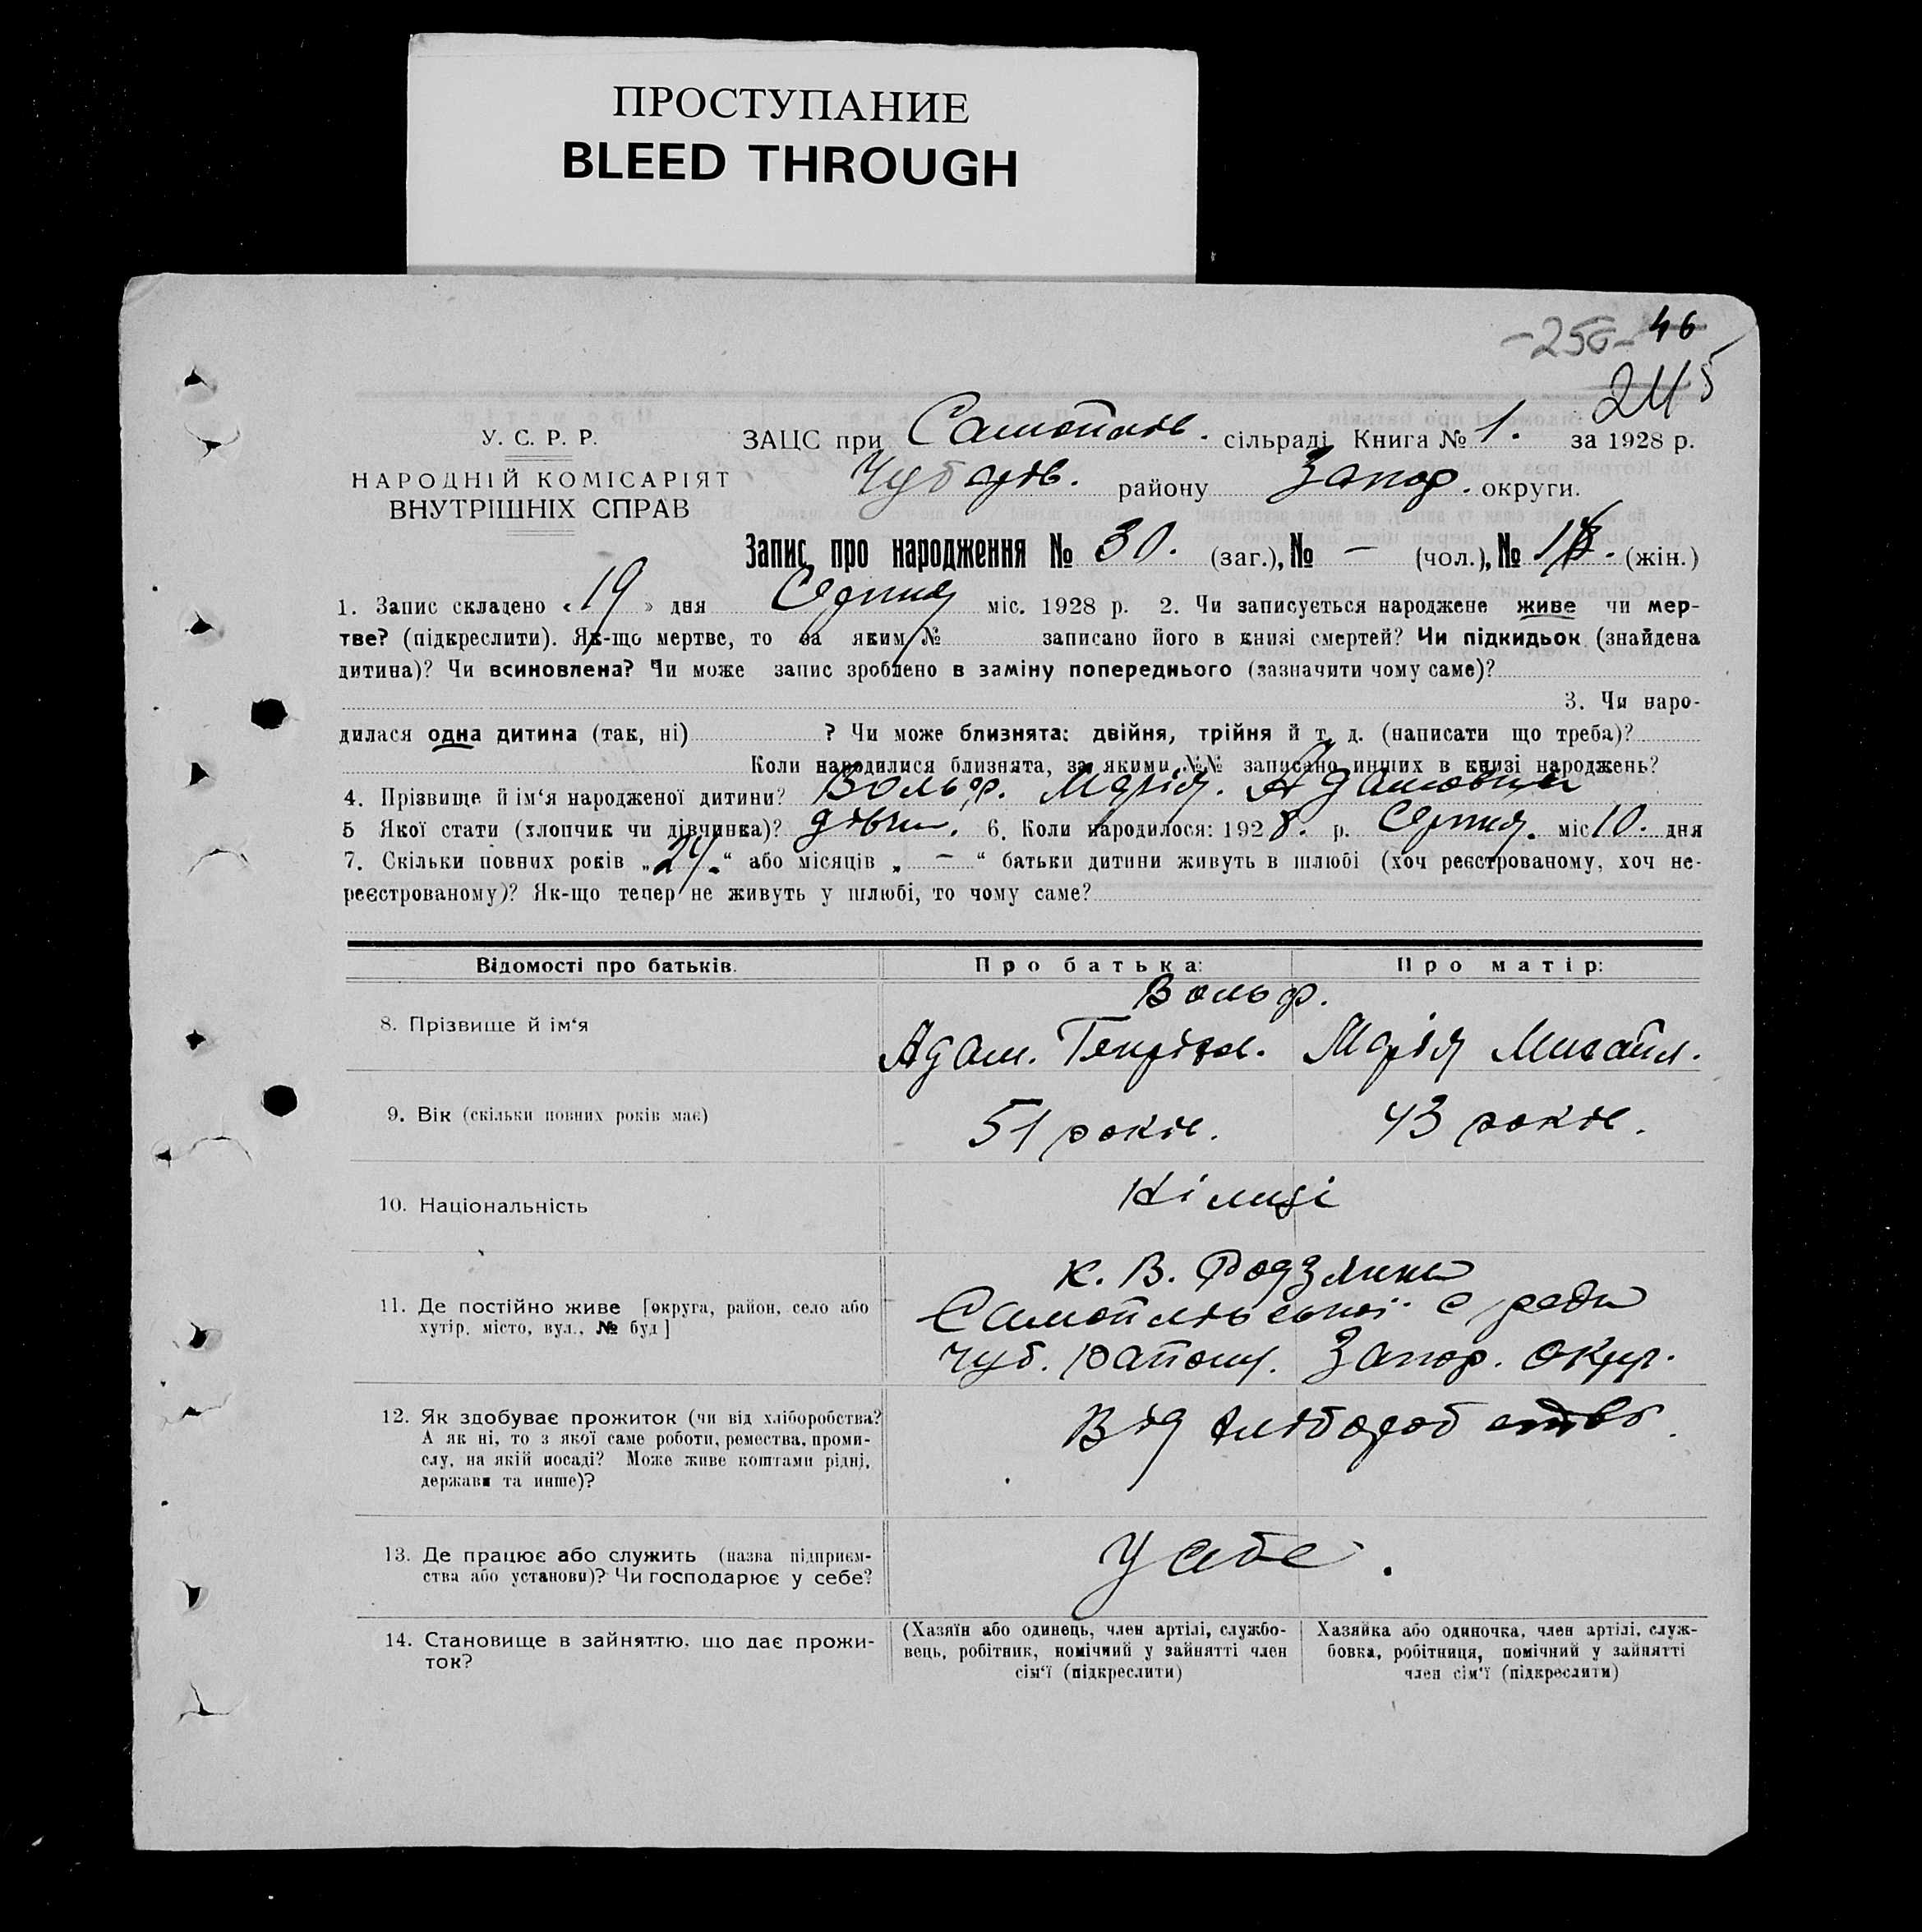 ПРОСТУПАНИЕ
BLEED THROUGH
-250- 46
245
У. С. Р. Р.
НАРОДНІЙ КОМІСАРІЯТ
ВНУТРІШНІХ СПРАВ
ЗАЦС при Самойлів. сільраді Книга № 1. за 1928 р.
Чубарів. району Запор. округи.
Запис про народження № 30. (заг.), № – (чол.), № 18. (жін.)
1. Запис складено «19» дня Серпня міс. 1928 р. 2. Чи записується народжене живе чи мер-
тве? (підкреслити). Як-що мертве, то за яким № записано його в книзі смертей? Чи підкидьок (знайдена
дитина)? Чи всиновлена? Чи може запис зроблено в заміну попереднього (зазначити чому саме)?
3. Чи наро-
дилася одна дитина (так, ні) ? Чи може близнята: двійня, трійня й т. д. (написати що треба)?
Коли народилися близнята, за якими №№ записано инших в книзі народжень?
4. Прізвище й ім‘я народженої дитини? Вольф. Марія. Адамовна
5 Якої стати (хлопчик чи дівчинка)? дівчин. 6. Коли народилося: 1928. р. Серпня. міс 10. дня
7. Скільки повних років „24.“ або місяців „–“ батьки дитини живуть в шлюбі (хоч реєстрованому, хоч не-
реєстрованому)? Як-що тепер не живуть у шлюбі, то чому саме?
Відомості про батьків. Про батька: Про матір:
Вольф.
8. Прізвище й ім‘я Адам. Генріхов. Марія Михайл.
9. Вік (скільки повних років має) 51 років. 43 років.
10. Національність Німці
к. В. Родзянки
11. Де постійно живе [округа, район, село або Самойлівської с ради
хутір, місто, вул., № буд] Чуб. району. Запор. округ.
12. Як здобуває прожиток (чи від хліборобства? Від хліборобства.
А як ні, то з якої саме роботи, ремества, проми-
слу, на якій посаді? Може живе коштами рідні,
держави та инше)?
13. Де працює або служить (назва підприєм- У себе.
ства або установи)? Чи господарює у себе?
14. Становище в зайняттю, що дає прожи-
ток?
(Хазяїн або одинець, член артілі, службо-
вець, робітник, помічний у зайнятті член
сім‘ї (підкреслити)
Хазяйка або одиночка, член артілі, служ-
бовка, робітниця, помічний у зайнятті
член сім‘ї (підкреслити)